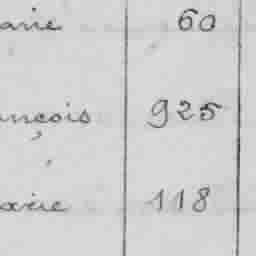 arie 60
ançois 925
arie 118